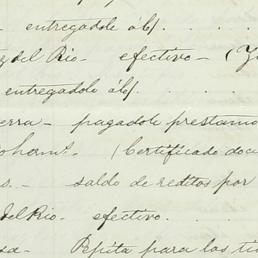 entregadole á b/.
del Rio - efectivo - (
entregadole á b/.
erra - pagadole prestamo
(Certificado doc
s. - saldo de reditos por
del Rio - efectivo.
sa - Pepita para los